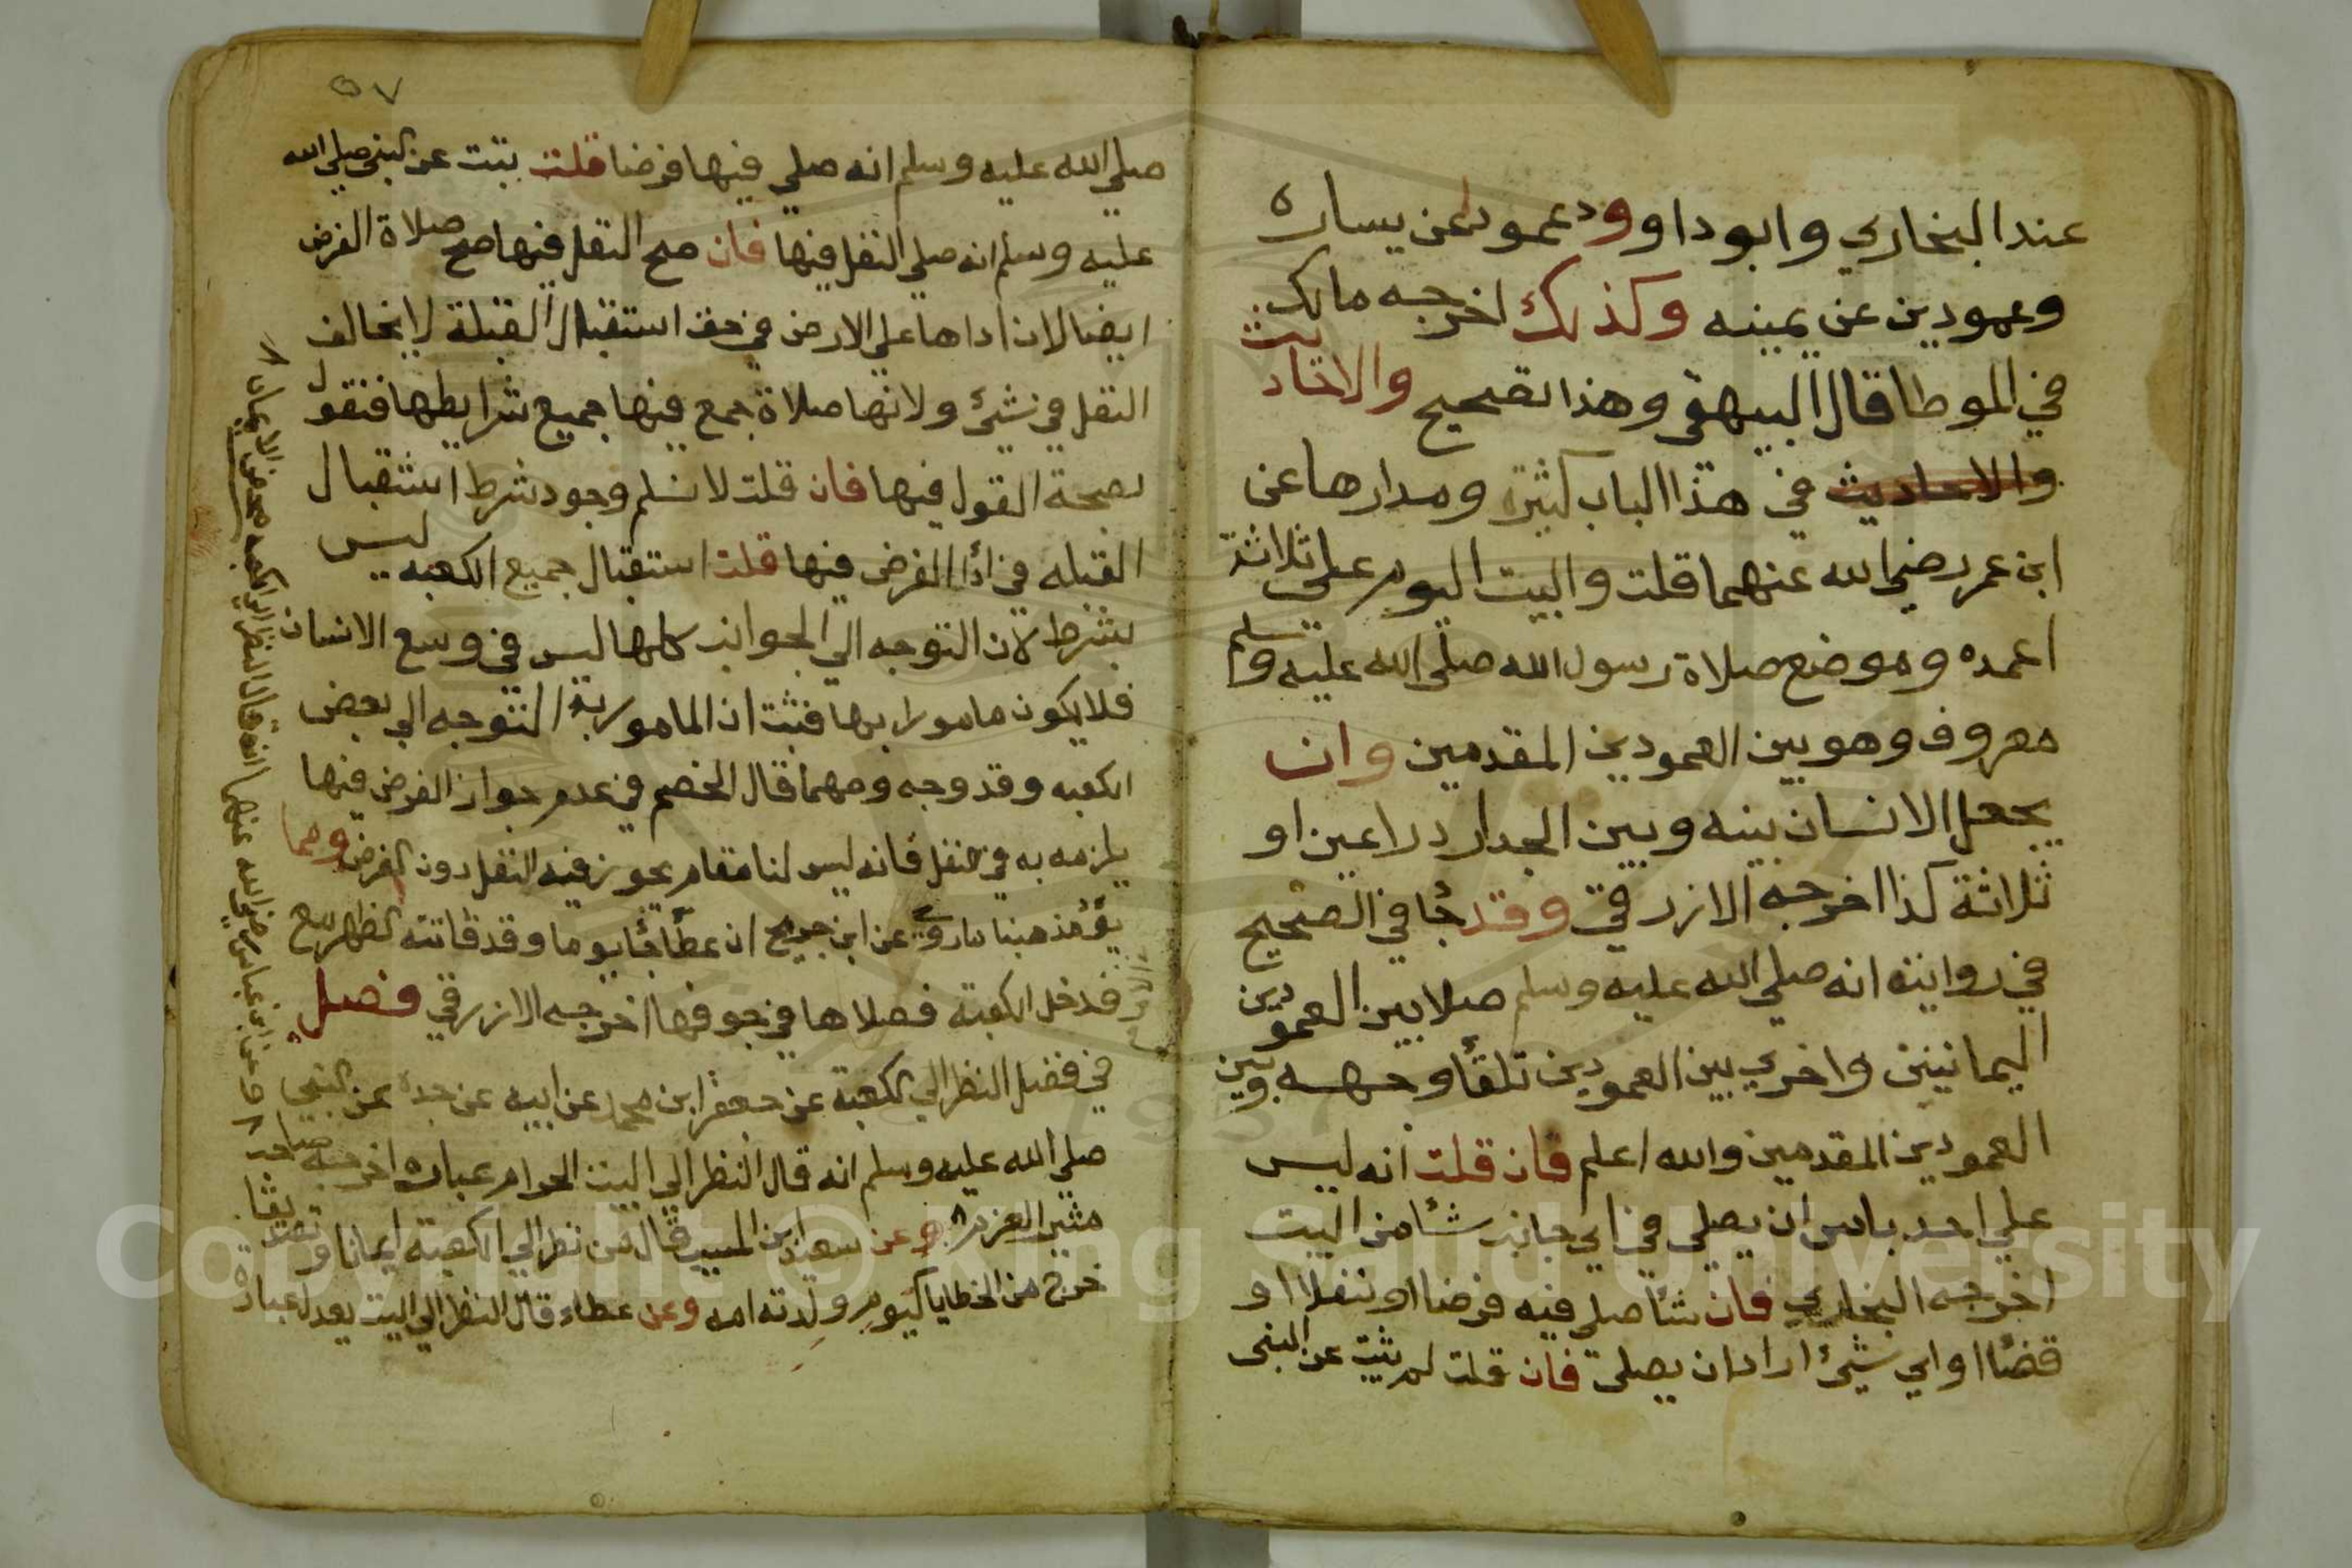 عند البخاري وابو داوود وعمودا عن يساره
وعمودين عن يمينه وكذلك اخرجه مالك
في الموطا قال البيهقي وهذا تصحيح والاحاديث
والاحاديث في هذا الباب كثيرة ومدارها عن
ابن عمر رضي الله عنهما قلت والبيت اليوم على ثلاثة
اعمده وموضع صلاة رسول الله صلي الله عليه وسلم
معروف وهو بين العمودين المقدمين وان
يجعل الانسان بينه وبين الجدار دراعين او
ثلاثة كذا اخرجه الازرقي وقد جا في الصحيح
في رواية انه صلي الله عليه وسلم صلا بين العمودين
اليمانيين واخري بين العمودين تلقا وجهه وبين
العمودين المقدمين والله اعلم فان قلت انه ليس
علي احد باس ان يصلي في اي جانب شا من البيت
اخرجه البخاري فان شا صلي فيه فرضا او نفلا او
قضا او اي شيئ اراد ان يصلي فان قلت لم يثبت عن النبي
٥٧
صلي الله عليه وسلم انه صلي فيها فرضا قلت يثبت عن النبي صلي الله
عليه وسلم انه صلي النفل فيها فان صح النفل فيها صح صلاة الفرض
ايضا لان اداها علي الارض في حق استقبال القبلة لا يخالف
النفل في شيئ ولانها صلاة جمع فيها جميع شرايطها فنقول
بصحة القول فيها فان قلت لا نسلم وجود شرط استقبال
القبله في ادا الفرض فيها قلت استقبال جميع الكعبه ليس
بشرط لان التوجه الي الجوانب كلها ليس في وسع الانسان
فلا يكون مامورا بها فثبت ان المامور به التوجه الي بعض
الكعبه وقد وجه ومهما قال الخصم في عدم جواز الفرض فيها
يلزمه به في النفل فانه ليس لنا مقام يجوز فيه النفل دون الفرض ومما
يؤ مذهبنا ما روي عن ابن جريج ان عطا جا يوما وقد فاتته الظهر مع
فدخل الكعبة فصلاها في جوفها اخرجه الازرقي فصل
في فضل النظر الي الكعبة عن جعفر ابن محمد عن ابيه عن جده عن النبي
صلي الله عليه وسلم انه قال النظر الي البيت الحرام عباده اخرجه صاحب
مثير العزم وعن سعيد ابن المسيب قال من نظر الي الكعبة ايمانا وتصديقا
خرج من الخطايا كيوم ولدته امه وعن عطاء قال النظر الي البيت يعدل عبادة
وعن ابن عباس رضي الله عنهما انه قال النظر الي الكعبه محض الايمان